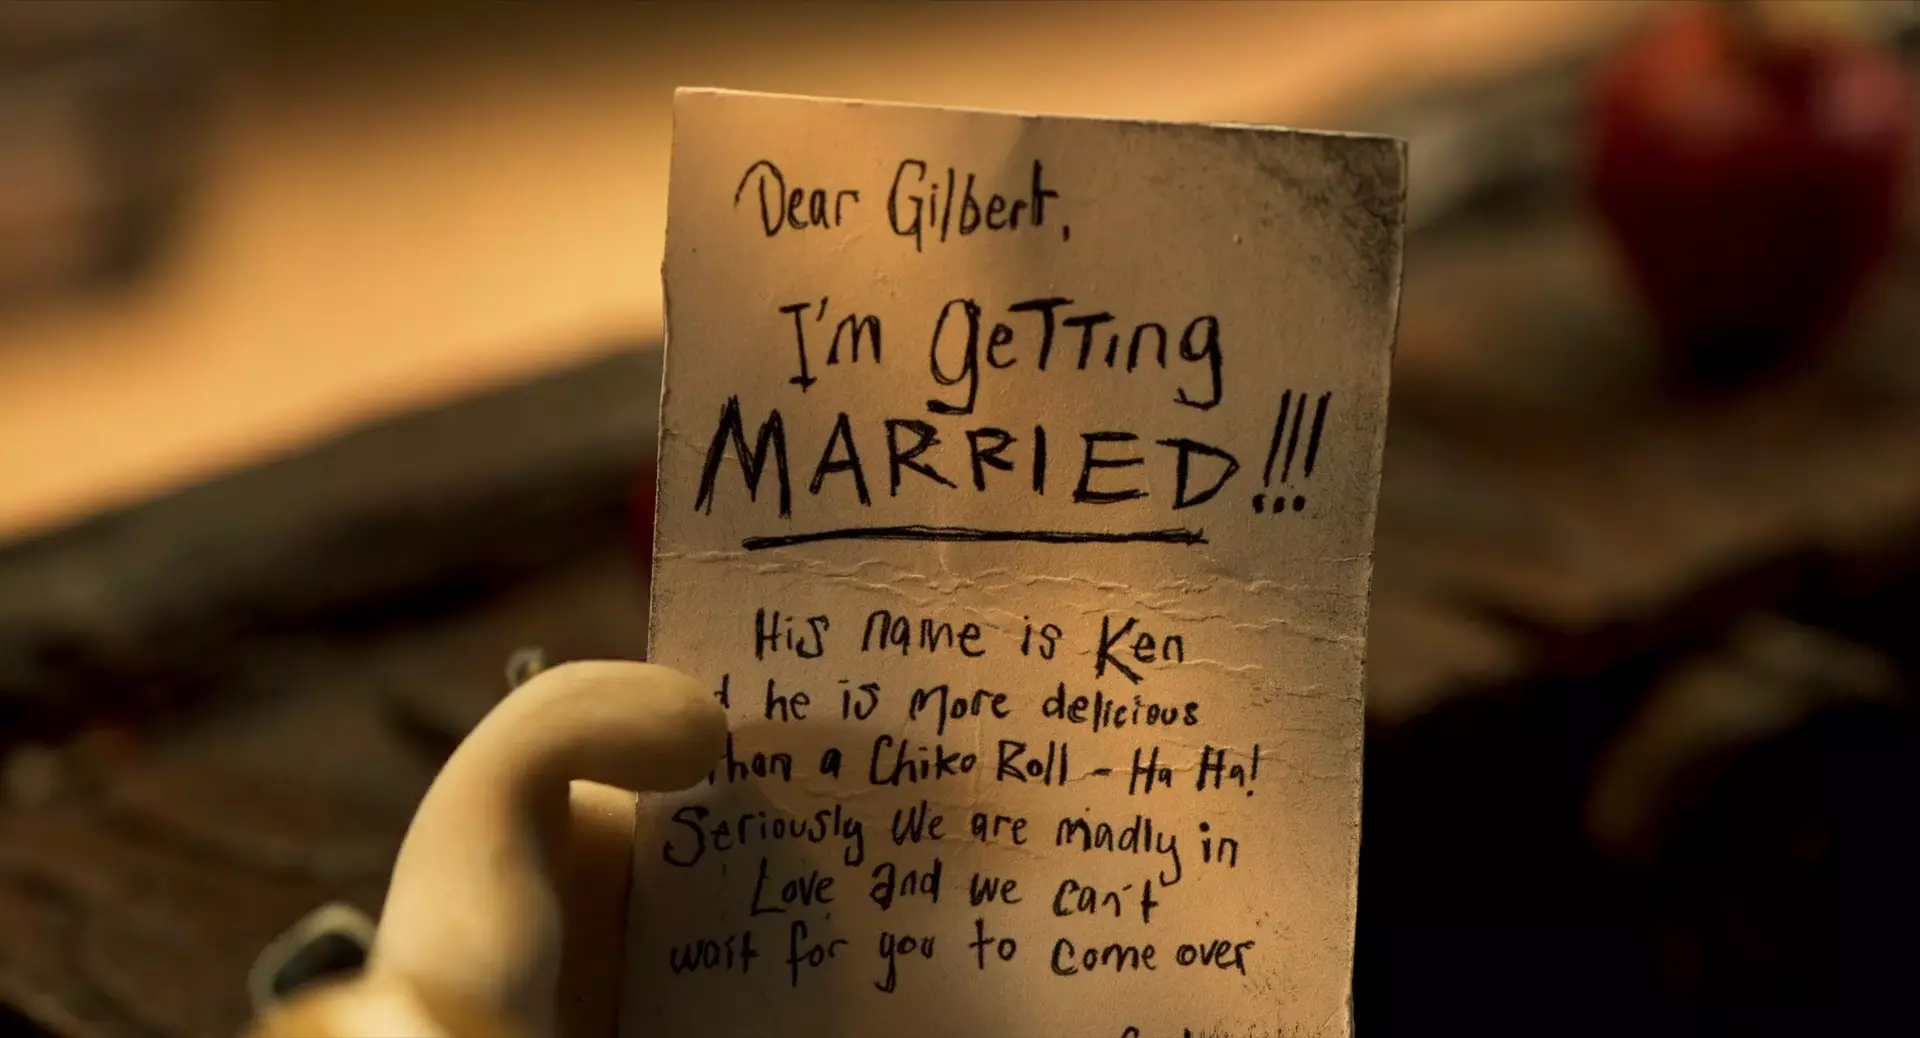 Dear Gilbert,
I'm geTTing
MARRIED!!!
His name is Ken
he is more delicious
than a Chiko Roll - Ha Ha!
Seriously We are madly in
Love and we can't
wait for you to come over